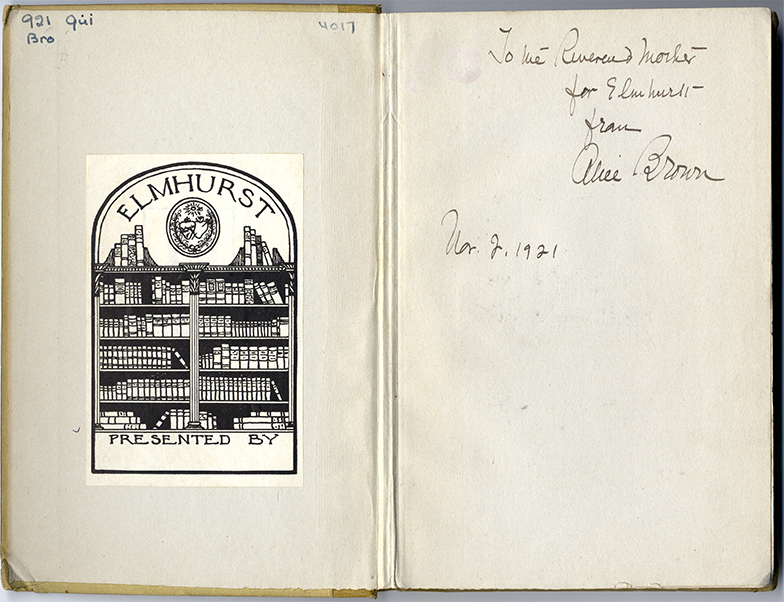 921 Qüi
Bro
4017
ELMHURST
PRESENTED BY
To the Reverend Mother
for Elmhurst
from
Alice Brown
Nov. 2, 1921